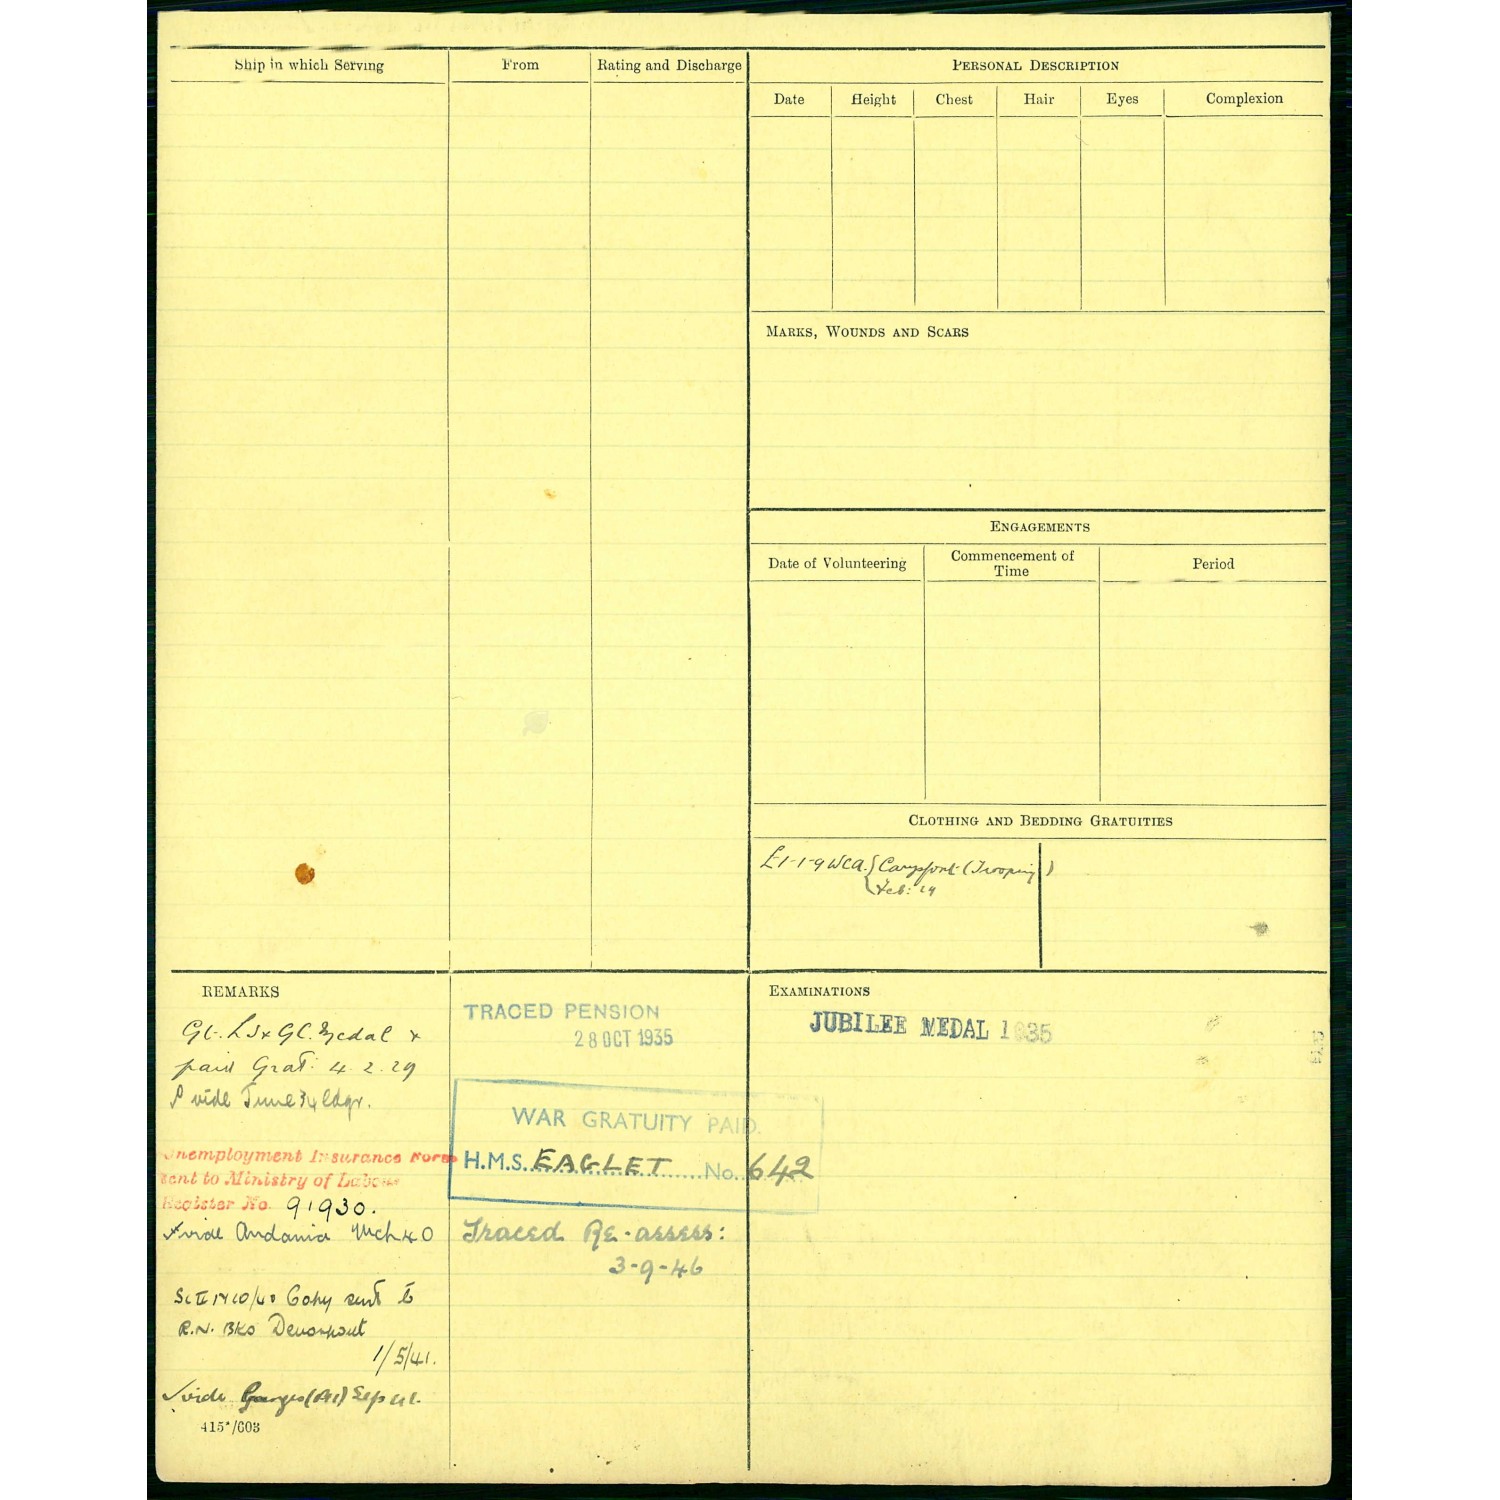 Ship in which Serving
From
Rating and Discharge
PERSONAL DESCRIPTION
Date
Height
Chest
Hair
Eyes
Complexion
MARKS, WOUNDS AND SCARS
ENGAGEMENTS
Date of Volunteering
Commencement of
Time
Period
CLOTHING AND BEDDING GRATUITIES
£1-1-9 WCA. { (Trooping)
Feb:
REMARKS
Gt. LS & GC. Medal &
paid Grat: 4.2.29
vide June 34 ldgr.
Unemployment Insurance Form
sent to Ministry of Labour
Register No. 91930.
vide Andania Mch 40
Copy sent to
R.N. Bks Devonport
1/5/41.
vide Ganges Sep 41.
TRACED PENSION
28 OCT 1935
WAR GRATUITY PAID.
H.M.S. EAGLET No. 642
Traced Re-assess:
3-9-46
EXAMINATIONS
JUBILEE MEDAL 1935